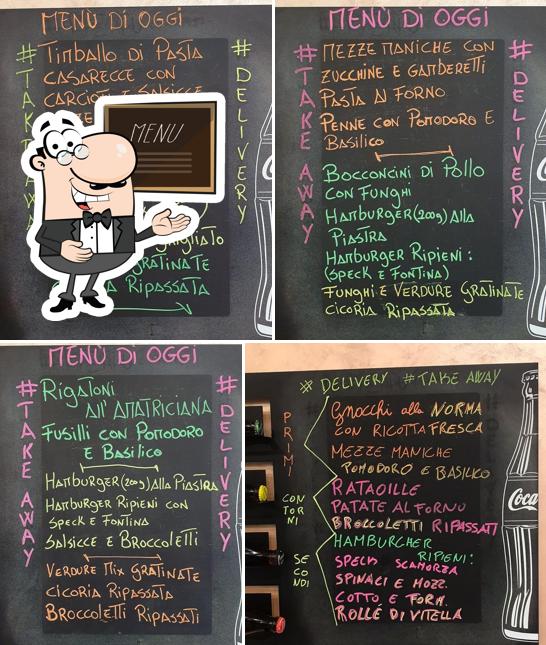 MENÙ DI OGGI
#TAK
#DELIVERY
TIMBALLO DI PASTA
CASARECCE CON
CARCIOFI E SALSICCE
MENU
GRIGLIATO
GRATINATE
RIPASSATA
MENÙ DI OGGI
#TAKE AWAY
#DELIVERY
MEZZE MANICHE CON
ZUCCHINE E GAMBERETTI
PASTA AL FORNO
PENNE CON POMODORO E
BASILICO
BOCCONCINI DI POLLO
CON FUNGHI
HAMBURGER(200g) ALLA
PIASTRA
HAMBURGER RIPIENI:
(SPECK E FONTINA)
FUNGHI E VERDURE GRATINATE
CICORIA RIPASSATA
MENÙ DI OGGI
#TAKE AWAY
#DELIVERY
RIGATONI
ALL'AMATRICIANA
FUSILLI CON POMODORO
E BASILICO
HAMBURGER(200g) ALLA PIASTRA
HAMBURGER RIPIENI CON
SPECK E FONTINA
SALSICCE E BROCCOLETTI
VERDURE MIX GRATINATE
CICORIA RIPASSATA
BROCCOLETTI RIPASSATI
# DELIVERY # TAKE AWAY
PRIMI
GNOCCHI alla NORMA
CON RICOTTA FRESCA
MEZZE MANICHE
POMODORO E BASILICO
CONTORNI
RATAOILLE
PATATE AL FORNO
BROCCOLETTI RIPASSATI
SECONDI
HAMBURGHER
RIPIENI:
SPECK SCAMORZA
SPINACI E MOZZ.
COTTO E FORM.
ROLLÉ DI VITELLA
Coca